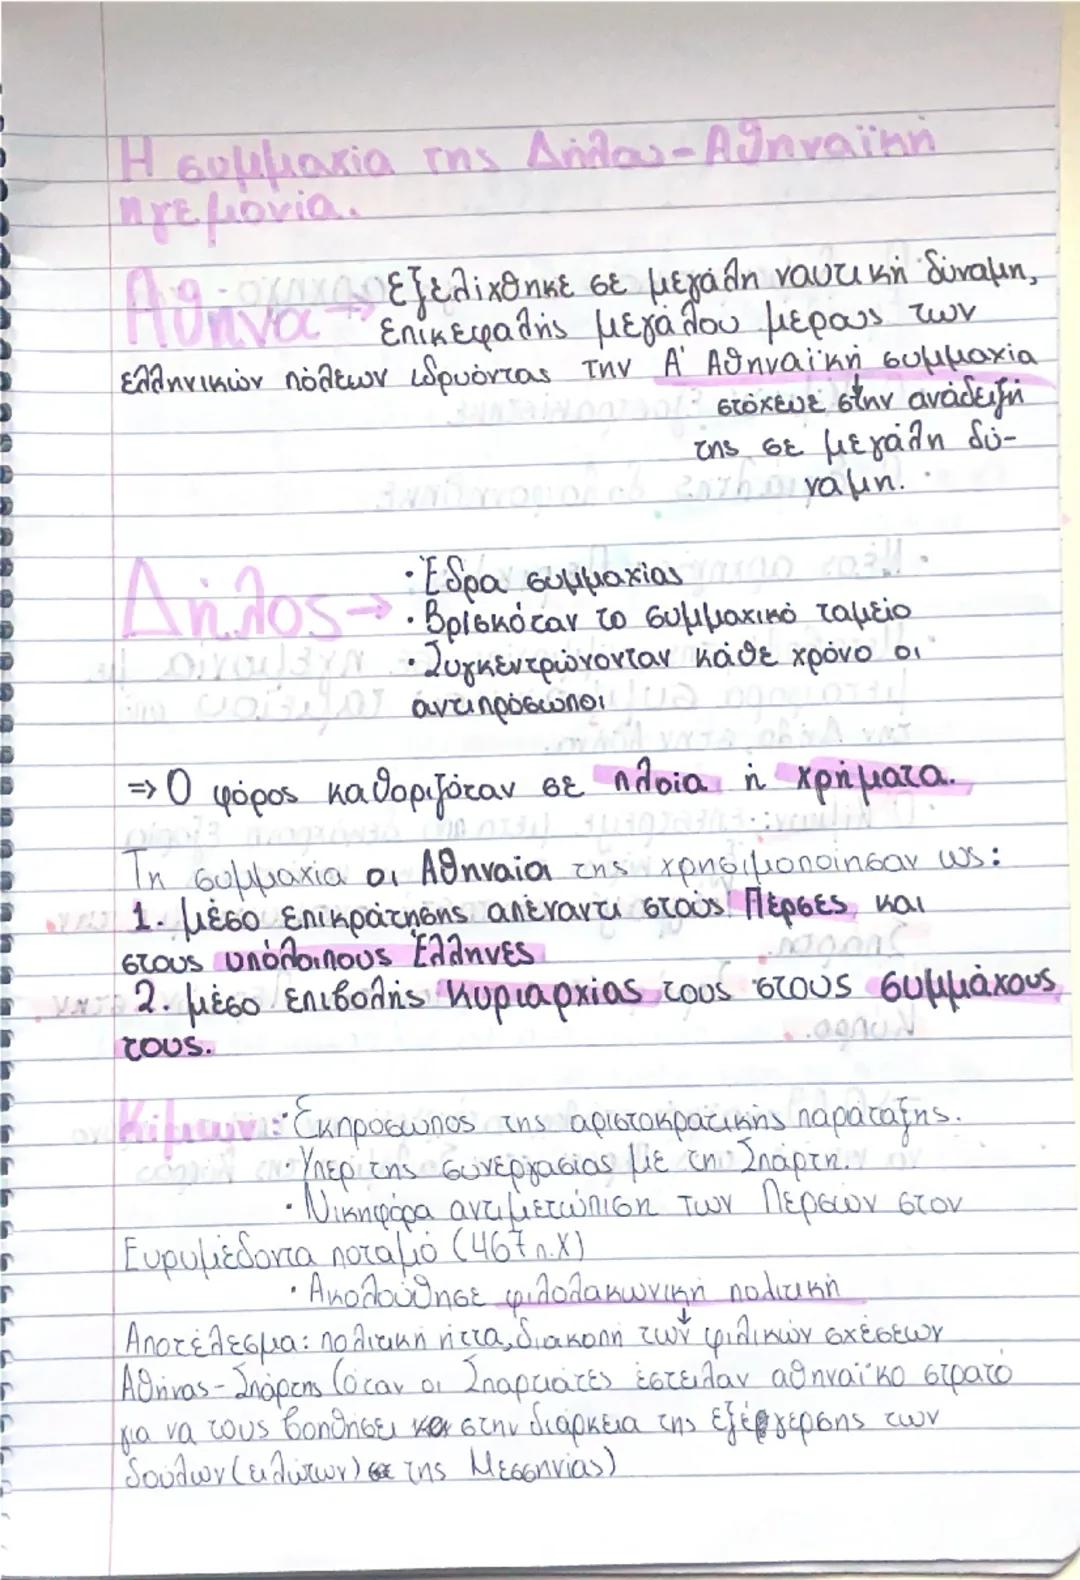 Η συμμαχία της Δήλου-Αθηναϊκή
ηγεμονία.
Αθήνα → Εξελίχθηκε σε μεγάλη ναυτική δύναμη,
επικεφαλής μεγάλου μέρους των
ελληνικών πόλεων ιδρυόντας την Α' Αθηναϊκή συμμαχία
στόχευε στην ανάδειξή
της σε μεγάλη δύ-
ναμη.
Δήλος → · Έδρα συμμαχίας
· Βρισκόταν το συμμαχικό ταμείο
· Συγκεντρώνονταν κάθε χρόνο οι
αντιπρόσωποι
⇒ Ο φόρος καθοριζόταν σε πλοία ή χρήματα.
Τη συμμαχία οι Αθηναίοι της χρησιμοποίησαν ως:
1. μέσο επικράτησης απέναντι στους Πέρσες και
στους υπόλοιπους Έλληνες
2. μέσο επιβολής κυριαρχίας τους στους συμμάχους
τους.
Κίμων: · Εκπρόσωπος της αριστοκρατικής παράταξης.
· Υπέρ της συνεργασίας με τη Σπάρτη.
· Νικηφόρα αντιμετώπιση των Περσών στον
Ευρυμέδοντα ποταμό (467 π.Χ)
· Ακολούθησε φιλολακωνική πολιτική
Αποτέλεσμα: πολιτική ήττα, διακοπή των φιλικών σχέσεων
Αθήνας-Σπάρτης (όταν οι Σπαρτιάτες έστειλαν αθηναϊκό στρατό
για να τους βοηθήσει στην διάρκεια της εξέγερσης των
δούλων (ειλώτων) της Μεσσηνίας)